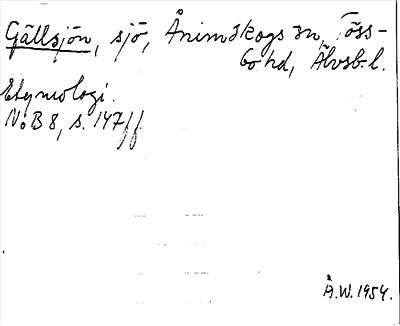 Gällsjön, sjö, Ånimskogs sn, Töss-
bo hd, Älvsb. l.
Etymologi.
NoB 8, s. 147 ff
Å.W. 1954.